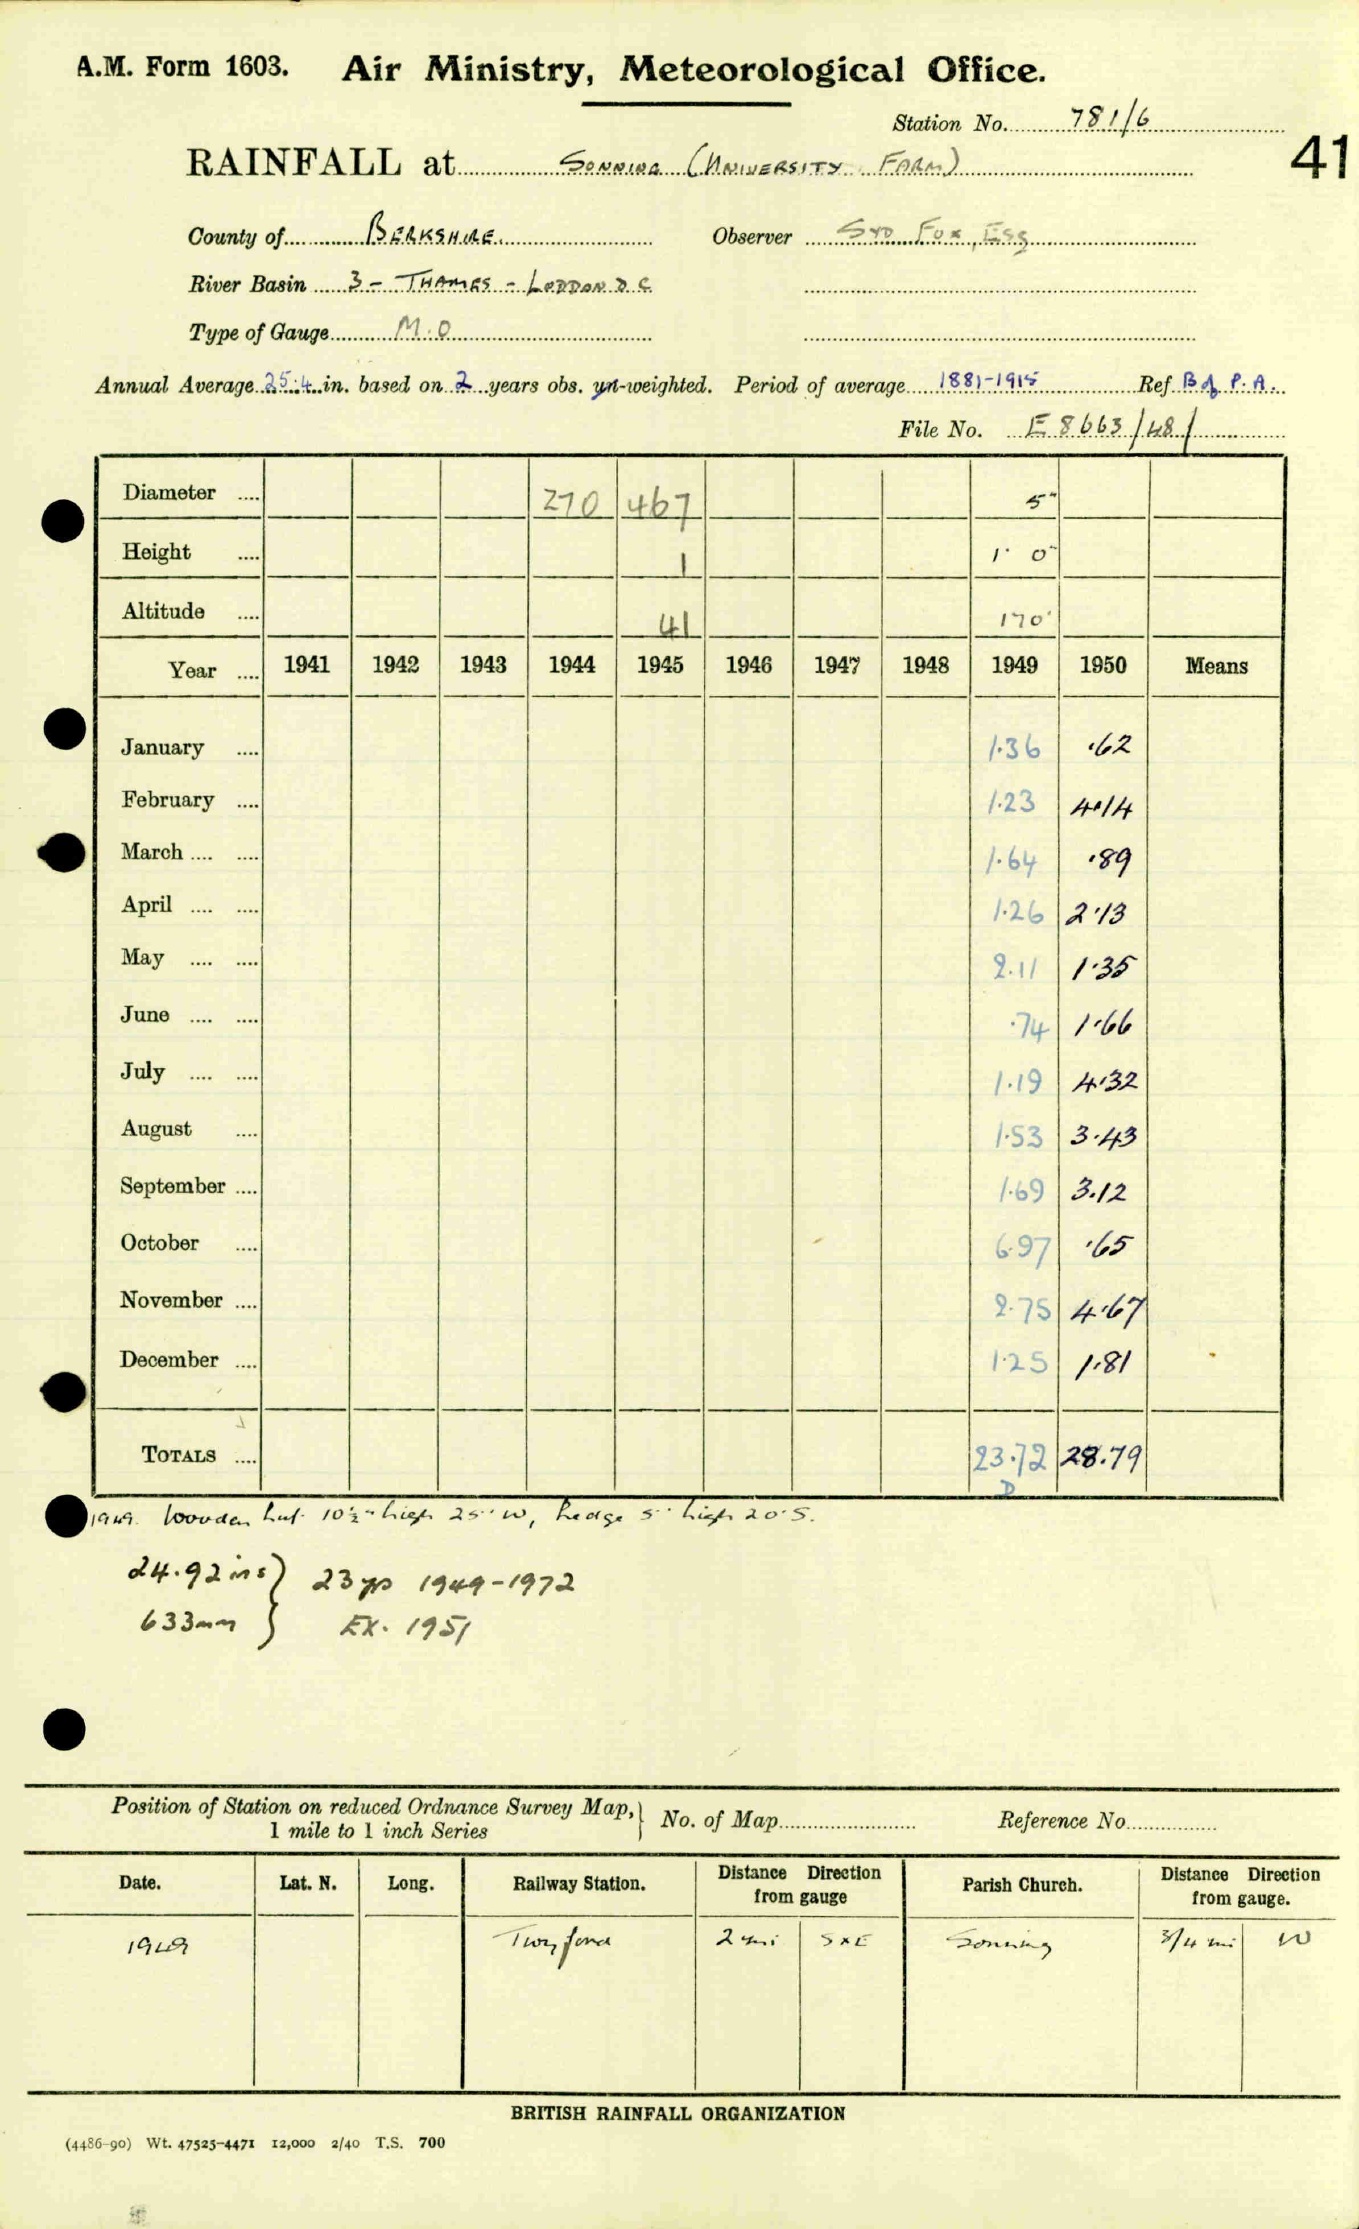 A.M. Form 1603. Air Ministry, Meteorological Office.
Station No. 781/6
41
RAINFALL at SONNING (UNIVERSITY FARM)
County of BERKSHIRE. Observer SYD FOX, ESQ
River Basin 3 - THAMES - LODDON D C
Type of Gauge M.O
Annual Average 25.4 in. based on 2 years obs. un-weighted. Period of average 1881-1915 Ref B of P.A.
File No. E 8663/48/
Diameter .... 270 467 5"
Height .... 1 1' 0"
Altitude .... 41 170'
Year .... 1941 1942 1943 1944 1945 1946 1947 1948 1949 1950 Means
January .... 1.36 .62
February .... 1.23 4.14
March .... .... 1.64 .89
April .... .... 1.26 2.13
May .... .... 2.11 1.35
June .... .... .74 1.66
July .... .... 1.19 4.32
August .... 1.53 3.43
September .... 1.69 3.12
October .... 6.97 .65
November .... 2.75 4.67
December .... 1.25 1.81
TOTALS .... 23.72 28.79
D
1949. Wooden hut 10½' high 25' W, hedge 5' high 20' S.
24.92 ins } 23 yrs 1949-1972
633mm } EX. 1951
Position of Station on reduced Ordnance Survey Map, } No. of Map Reference No.
1 mile to 1 inch Series
Date. Lat. N. Long. Railway Station. Distance Direction from gauge Parish Church. Distance Direction from gauge.
1949 Twyford 2 mi S x E Sonning 3/4 mi W
BRITISH RAINFALL ORGANIZATION
(4486-90) Wt. 47525-4471 12,000 2/40 T.S. 700